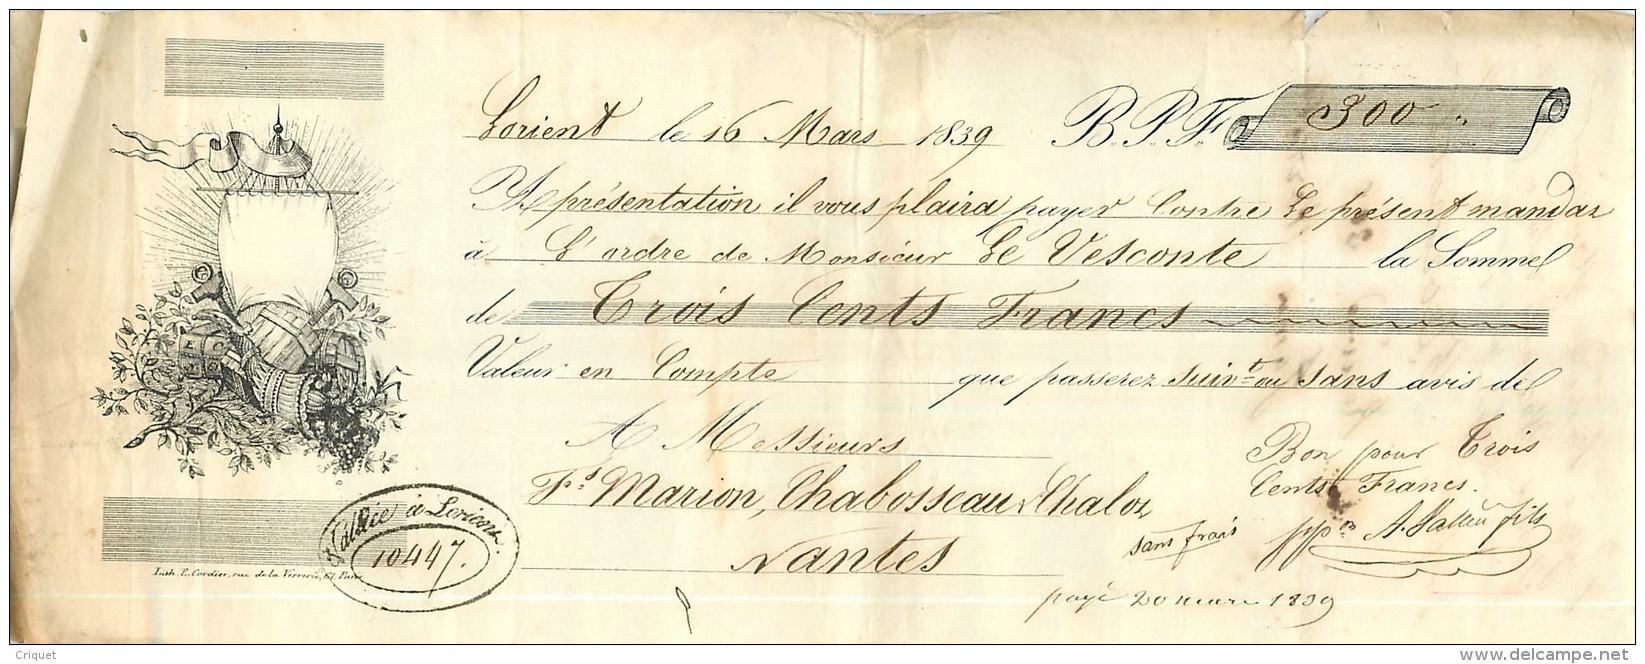 Lorient le 16 Mars 1839 B.P.F. 300 "
A présentation il vous plaira payer Contre le présent mandat
à L'ordre de Monsieur Le Vesconte la Somme
de Trois Cents Francs
Valeur en Compte que passerez suivt ou sans avis de
A Messieurs
Fs Marion, Chabosseau & Chalot
Nantes
Bon pour Trois
Cents Francs.
sans frais
fils
payé 20 mars 1839
à Lorient.
10447.
Lith. E. Cordier, rue de la Verrerie, 61, Paris
Criquet
www.delcampe.net